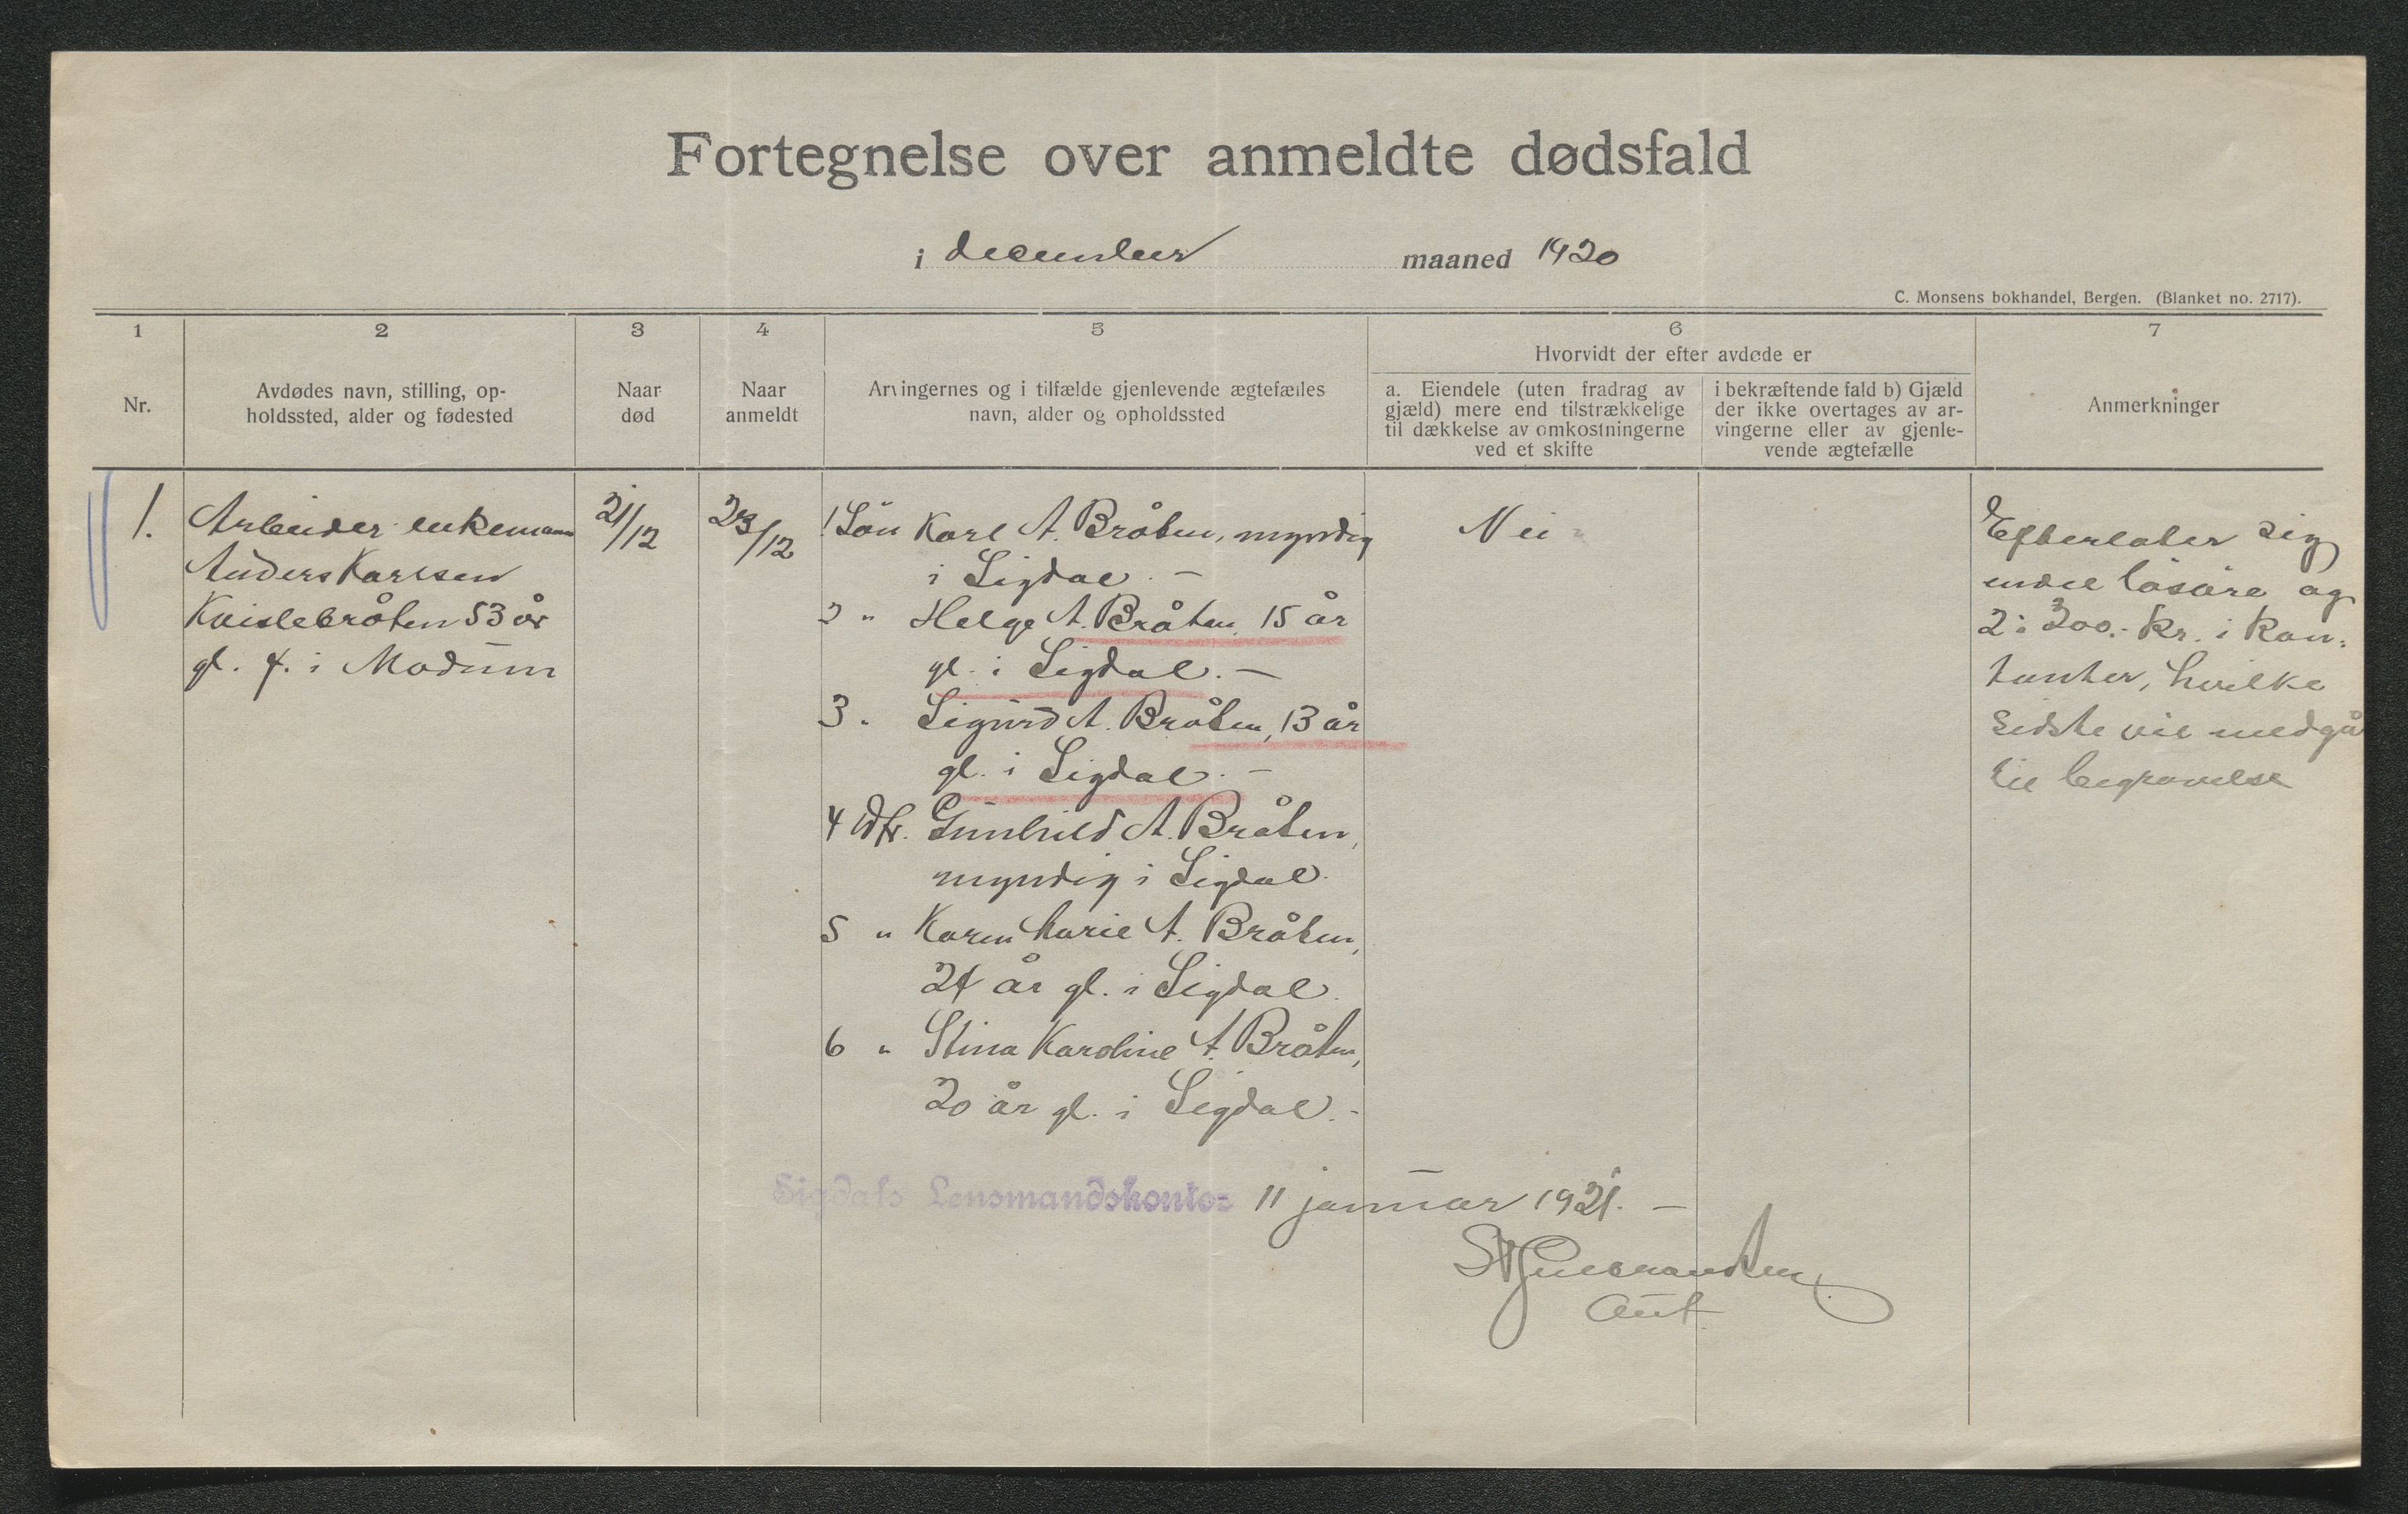 Fortegnelse over anmeldte dødsfald
i december maaned 1920
C. Monsens bokhandel, Bergen. (Blanket no. 2717).
1
Nr.
2
Avdødes navn, stilling, op-
holdssted, alder og fødested
3
Naar
død
4
Naar
anmeldt
5
Arvingernes og i tilfælde gjenlevende ægtefælles
navn, alder og opholdssted
6
Hvorvidt der efter avdøde er
a. Eiendele (uten fradrag av
gjæld) mere end tilstrækkelige
til dækkelse av omkostningerne
ved et skifte
i bekræftende fald b) Gjæld
der ikke overtages av ar-
vingerne eller av gjenle-
vende ægtefælle
7
Anmerkninger
1.
Arbeider enkemann
Anders Karlsen
bråten 53 år
gl. f. i Modum
21/12
23/12
1 Sön Karl A. Bråten, myndig
i Sigdal. —
2 " Helge A. Bråten, 15 år
gl. i Sigdal. —
3 " Sigurd A. Bråten, 13 år
gl. i Sigdal. —
4 Dtr. Gunhild A. Bråten,
myndig i Sigdal.
5 " Karen Marie A. Bråten,
24 år gl. i Sigdal.
6 " Stina Karoline A. Bråten,
20 år gl. i Sigdal. -
Nei
Efterlater sig
endel lösöre og
2: 300.- kr. i kon-
tanter, hvilke
sidste vil medgå
til begravelse
Sigdals Lensmandskontor 11 januar 1921. —